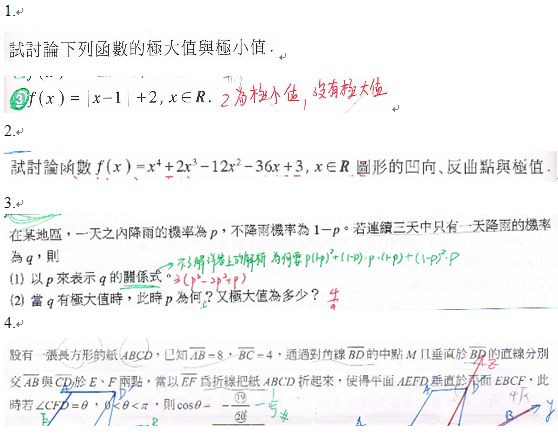 1.
試討論下列函數的極大值與極小值.
③ f(x) = |x-1| +2, x∈R. 2為極小值, 沒有極大值
2.
試討論函數 f(x)=x⁴+2x³-12x²-36x+3, x∈R 圖形的凹向、反曲點與極值.
3.
在某地區，一天之內降雨的機率為 p，不降雨機率為 1-p。若連續三天中只有一天降雨的機率
為 q，則 不了解詳答上的解析 為何要 p(1-p)²+(1-p)·p·(1-p)+(1-p)²·p
(1) 以 p 來表示 q 的關係式。 3(p³-2p²+p)
(2) 當 q 有極大值時，此時 p 為何？又極大值為多少？ 4/9
4.
設有一張長方形的紙 ABCD，已知 AB=8，BC=4，通過對角線 BD 的中點 M 且垂直於 BD 的直線分別
交 AB 與 CD 於 E、F 兩點，當以 EF 為折線把紙 ABCD 折起來，使得平面 AEFD 垂直於平面 EBCF，此
時若 ∠CFD=θ，0<θ<π，則 cosθ= -⑲/⑳ -1/5
D D z
B y